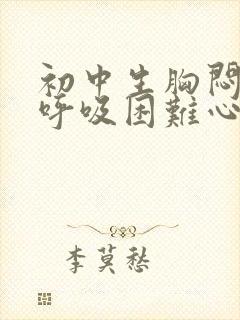 初中生胸悶
呼吸困難心
李莫愁